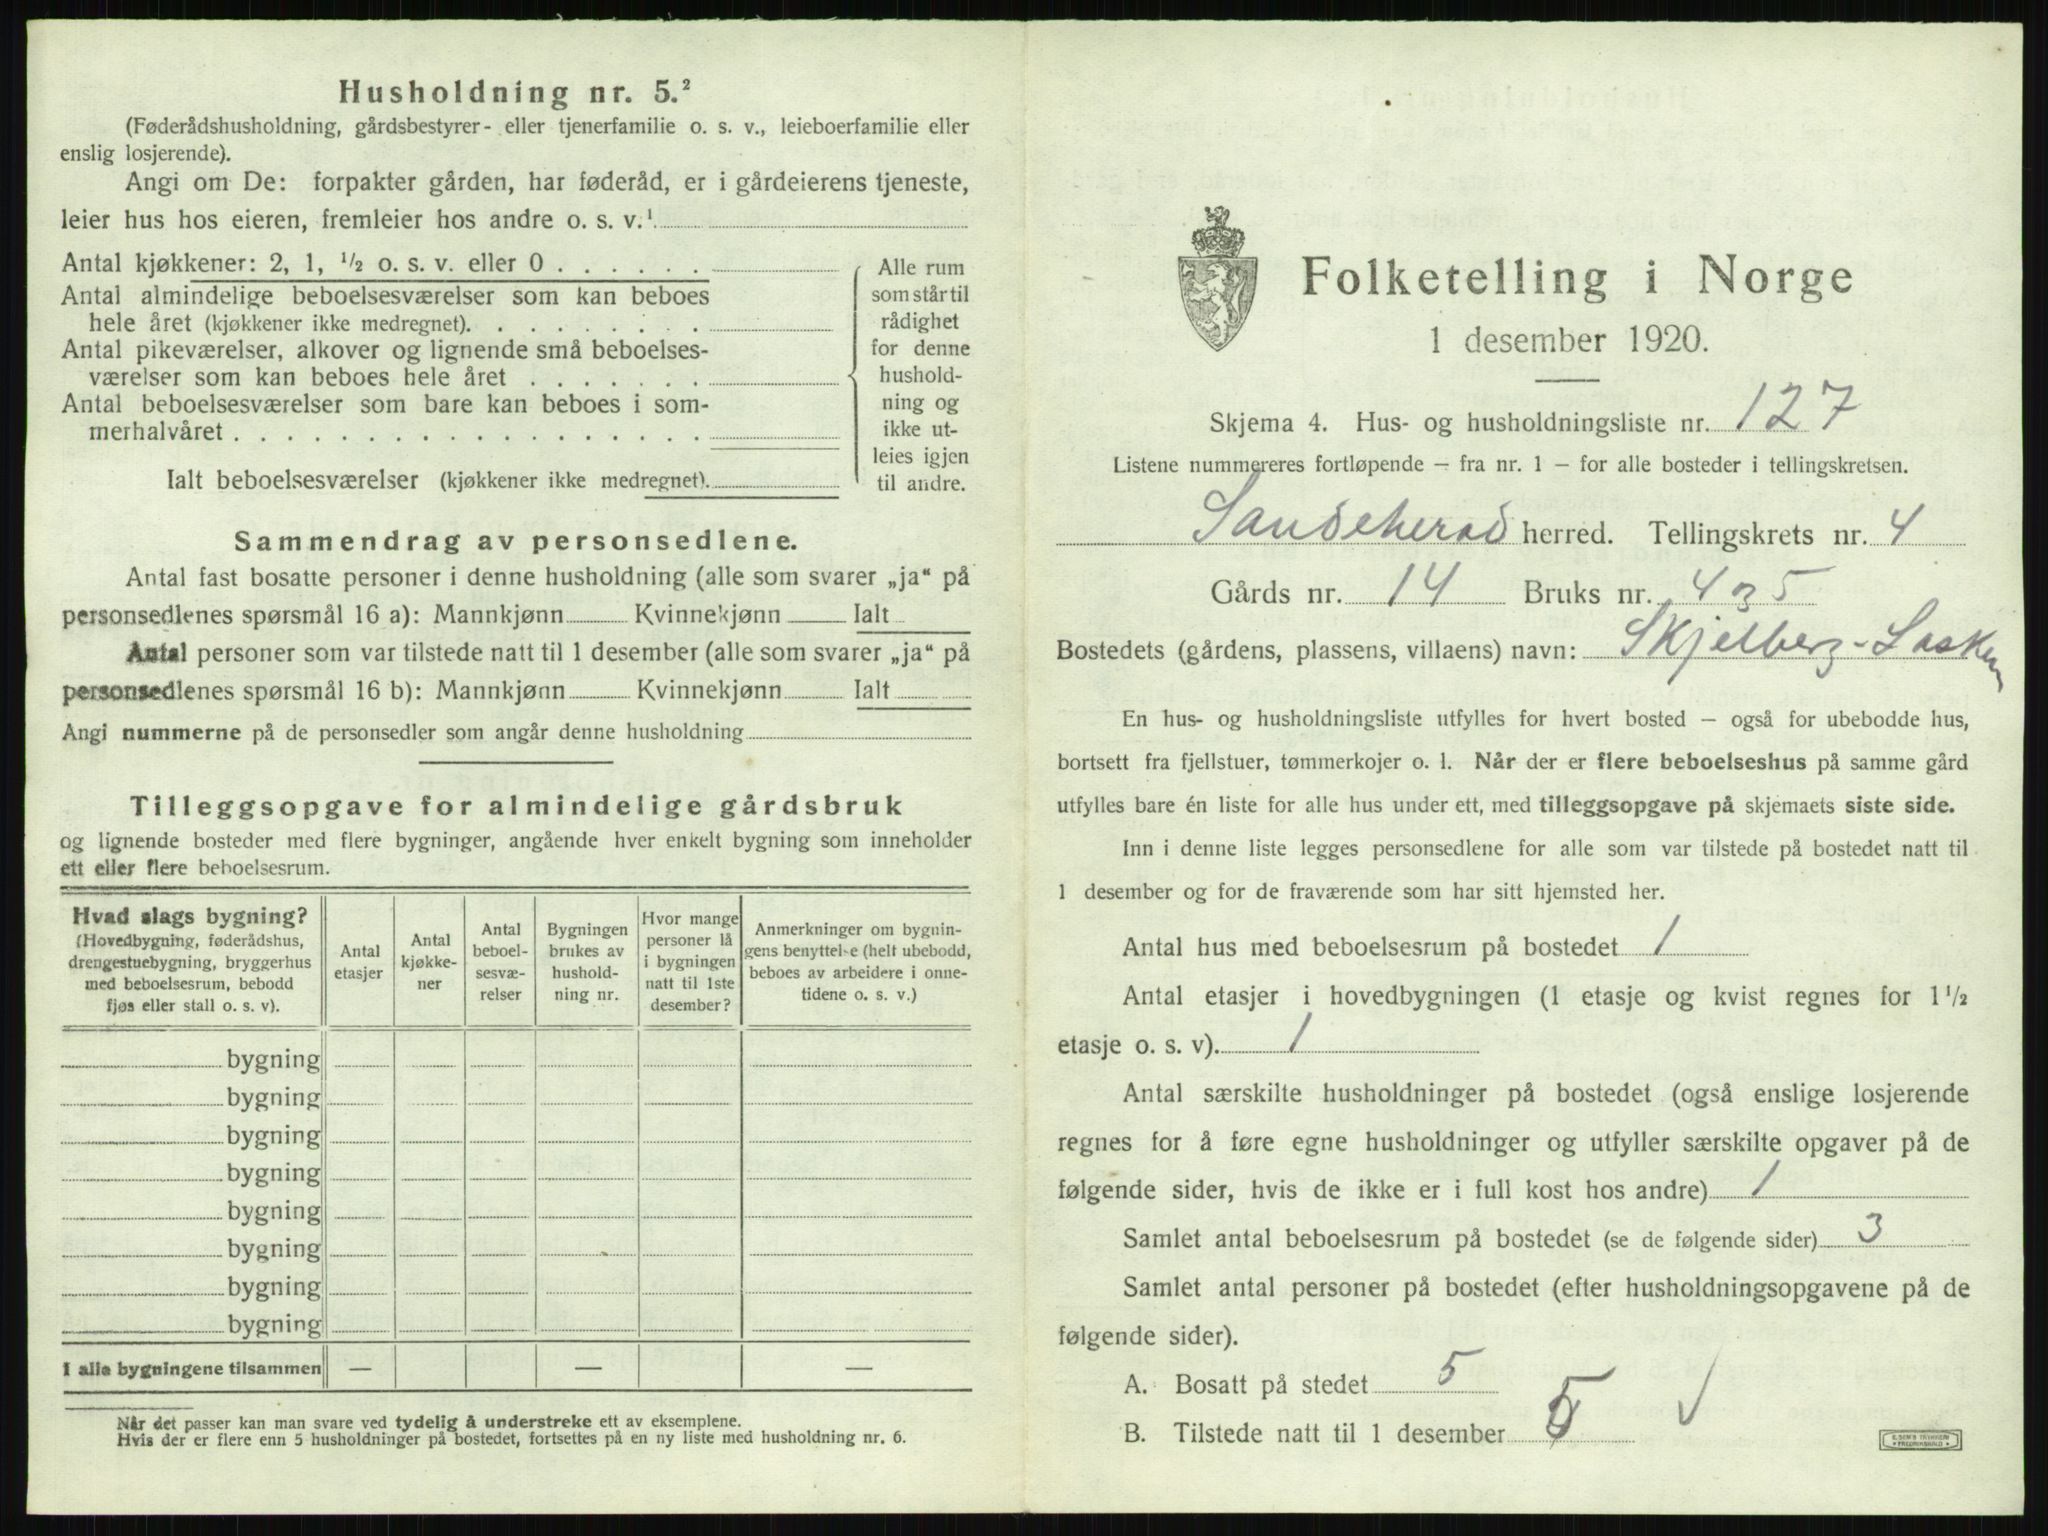 Husholdning nr. 5.²
(Føderådshusholdning, gårdsbestyrer- eller tjenerfamilie o. s. v., leieboerfamilie eller
enslig losjerende).
Angi om De: forpakter gården, har føderåd, er i gårdeierens tjeneste,
leier hus hos eieren, fremleier hos andre o. s. v.¹
Antal kjøkkener: 2, 1, ½ o. s. v. eller 0 . . . . . .
Antal almindelige beboelsesværelser som kan beboes
hele året (kjøkkener ikke medregnet). . . . . . . . .
Antal pikeværelser, alkover og lignende små beboelses-
værelser som kan beboes hele året . . . . . . .
Antal beboelsesværelser som bare kan beboes i som-
merhalvåret . . . . . . . . . . . . . . . . . .
Ialt beboelsesværelser (kjøkkener ikke medregnet).
Alle rum
som står til
rådighet
for denne
hushold-
ning og
ikke ut-
leies igjen
til andre.
Sammendrag av personsedlene.
Antal fast bosatte personer i denne husholdning (alle som svarer „ja“ på
personsedlenes spørsmål 16 a): Mannkjønn Kvinnekjønn Ialt
Antal personer som var tilstede natt til 1 desember (alle som svarer „ja“ på
personsedlenes spørsmål 16 b): Mannkjønn Kvinnekjønn Ialt
Angi nummerne på de personsedler som angår denne husholdning
Tilleggsopgave for almindelige gårdsbruk
og lignende bosteder med flere bygninger, angående hver enkelt bygning som inneholder
ett eller flere beboelsesrum.
Hvad slags bygning?
(Hovedbygning, føderådshus,
drengestuebygning, bryggerhus
med beboelsesrum, bebodd
fjøs eller stall o. s. v).
Antal
etasjer
Antal
kjøkke-
ner
Antal
beboel-
sesvæ-
relser
Bygningen
brukes av
hushold-
ning nr.
Hvor mange
personer lå
i bygningen
natt til 1ste
desember?
Anmerkninger om bygnin-
gens benyttelse (helt ubebodd,
beboes av arbeidere i onne-
tidene o. s. v.)
bygning
bygning
bygning
bygning
bygning
bygning
bygning
bygning
I alle bygningene tilsammen — — —
Når det passer kan man svare ved tydelig å understreke ett av eksemplene.
Hvis der er flere enn 5 husholdninger på bostedet, fortsettes på en ny liste med husholdning nr. 6.
Folketelling i Norge
1 desember 1920.
Skjema 4. Hus- og husholdningsliste nr. 127
Listene nummereres fortløpende – fra nr. 1 – for alle bosteder i tellingskretsen.
Sandeherad herred. Tellingskrets nr. 4
Gårds nr. 14 Bruks nr. 435
Bostedets (gårdens, plassens, villaens) navn: Skjelberg-Lasken
En hus- og husholdningsliste utfylles for hvert bosted – også for ubebodde hus,
bortsett fra fjellstuer, tømmerkojer o. l. Når der er flere beboelseshus på samme gård
utfylles bare én liste for alle hus under ett, med tilleggsopgave på skjemaets siste side.
Inn i denne liste legges personsedlene for alle som var tilstede på bostedet natt til
1 desember og for de fraværende som har sitt hjemsted her.
Antal hus med beboelsesrum på bostedet 1
Antal etasjer i hovedbygningen (1 etasje og kvist regnes for 1½
etasje o. s. v). 1
Antal særskilte husholdninger på bostedet (også enslige losjerende
regnes for å føre egne husholdninger og utfyller særskilte opgaver på de
følgende sider, hvis de ikke er i full kost hos andre) 1
Samlet antal beboelsesrum på bostedet (se de følgende sider) 3
Samlet antal personer på bostedet (efter husholdningsopgavene på de
følgende sider).
A. Bosatt på stedet 5
B. Tilstede natt til 1 desember 5 ✓